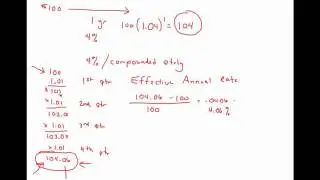 100
1 yr
4%
100(1.04)^1 = 104
4% / compounded qtrly
100
1.01 1st qtr
101
x 1.01 2nd qtr
x 1.01 3rd qtr
x 1.01 4th qtr
104.06
Effective Annual Rate
104.06 - 100
100
= .0406
4.06%